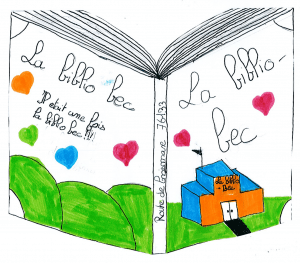 La biblio bec
Il était une fois
la biblio bec !!!
Route de
76133
La biblio-
bec
La biblio
- Bec